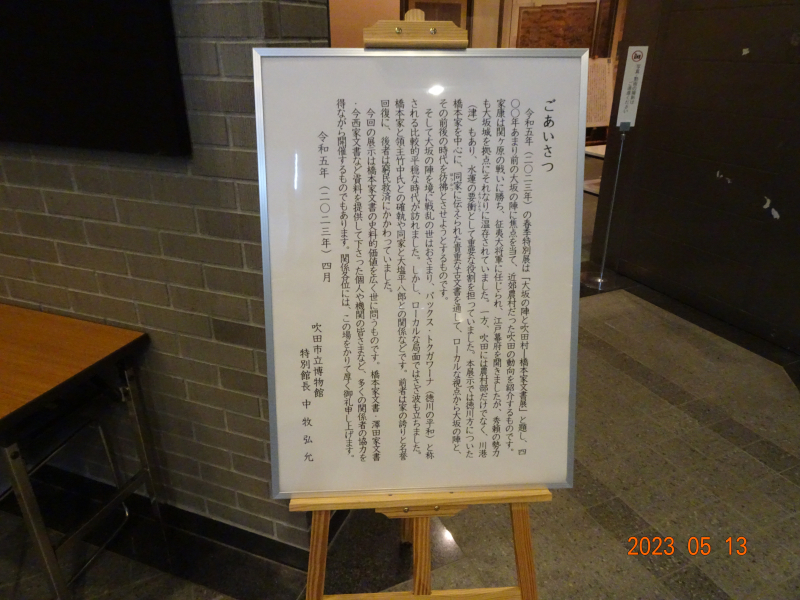 ごあいさつ
令和五年(二〇二三年)の春季特別展は「大坂の陣と吹田村―橋本家文書展」と題し、四
〇〇年あまり前の大坂の陣に焦点を当て、近郊農村だった吹田の動向を紹介するものです。
家康は関ヶ原の戦いに勝ち、征夷大将軍に任じられ、江戸幕府を開きましたが、秀頼の勢力
も大坂城を拠点にそれなりに温存されていました。一方、吹田には農村部だけでなく、川港
(津)もあり、水運の要衝として重要な役割を担っていました。本展示では徳川方についた
橋本家を中心に、同家に伝えられた貴重な古文書を通して、ローカルな視点から大坂の陣と、
その前後の時代を彷彿とさせようとするものです。
そして大坂の陣を境に戦乱の世はおさまり、パックス・トクガワーナ(徳川の平和)と称
される比較的平穏な時代が訪れました。しかし、ローカルな局面ではさざ波も立ちました。
橋本家と領主竹中氏との確執や同家と大塩平八郎との関係などです。前者は家の誇りと名誉
回復に、後者は窮民救済にかかわっていました。
今回の展示は橋本家文書の史料的価値を広く世に問うものです。橋本家文書・澤田家文書
・今西家文書など資料を提供して下さった個人や機関の皆さまなど、多くの関係者の協力を
得ながら開催するものでもあります。関係各位には、この場をかりて厚く御礼申し上げます。
令和五年(二〇二三年)四月
吹田市立博物館
特別館長 中牧弘允
2023 05 13